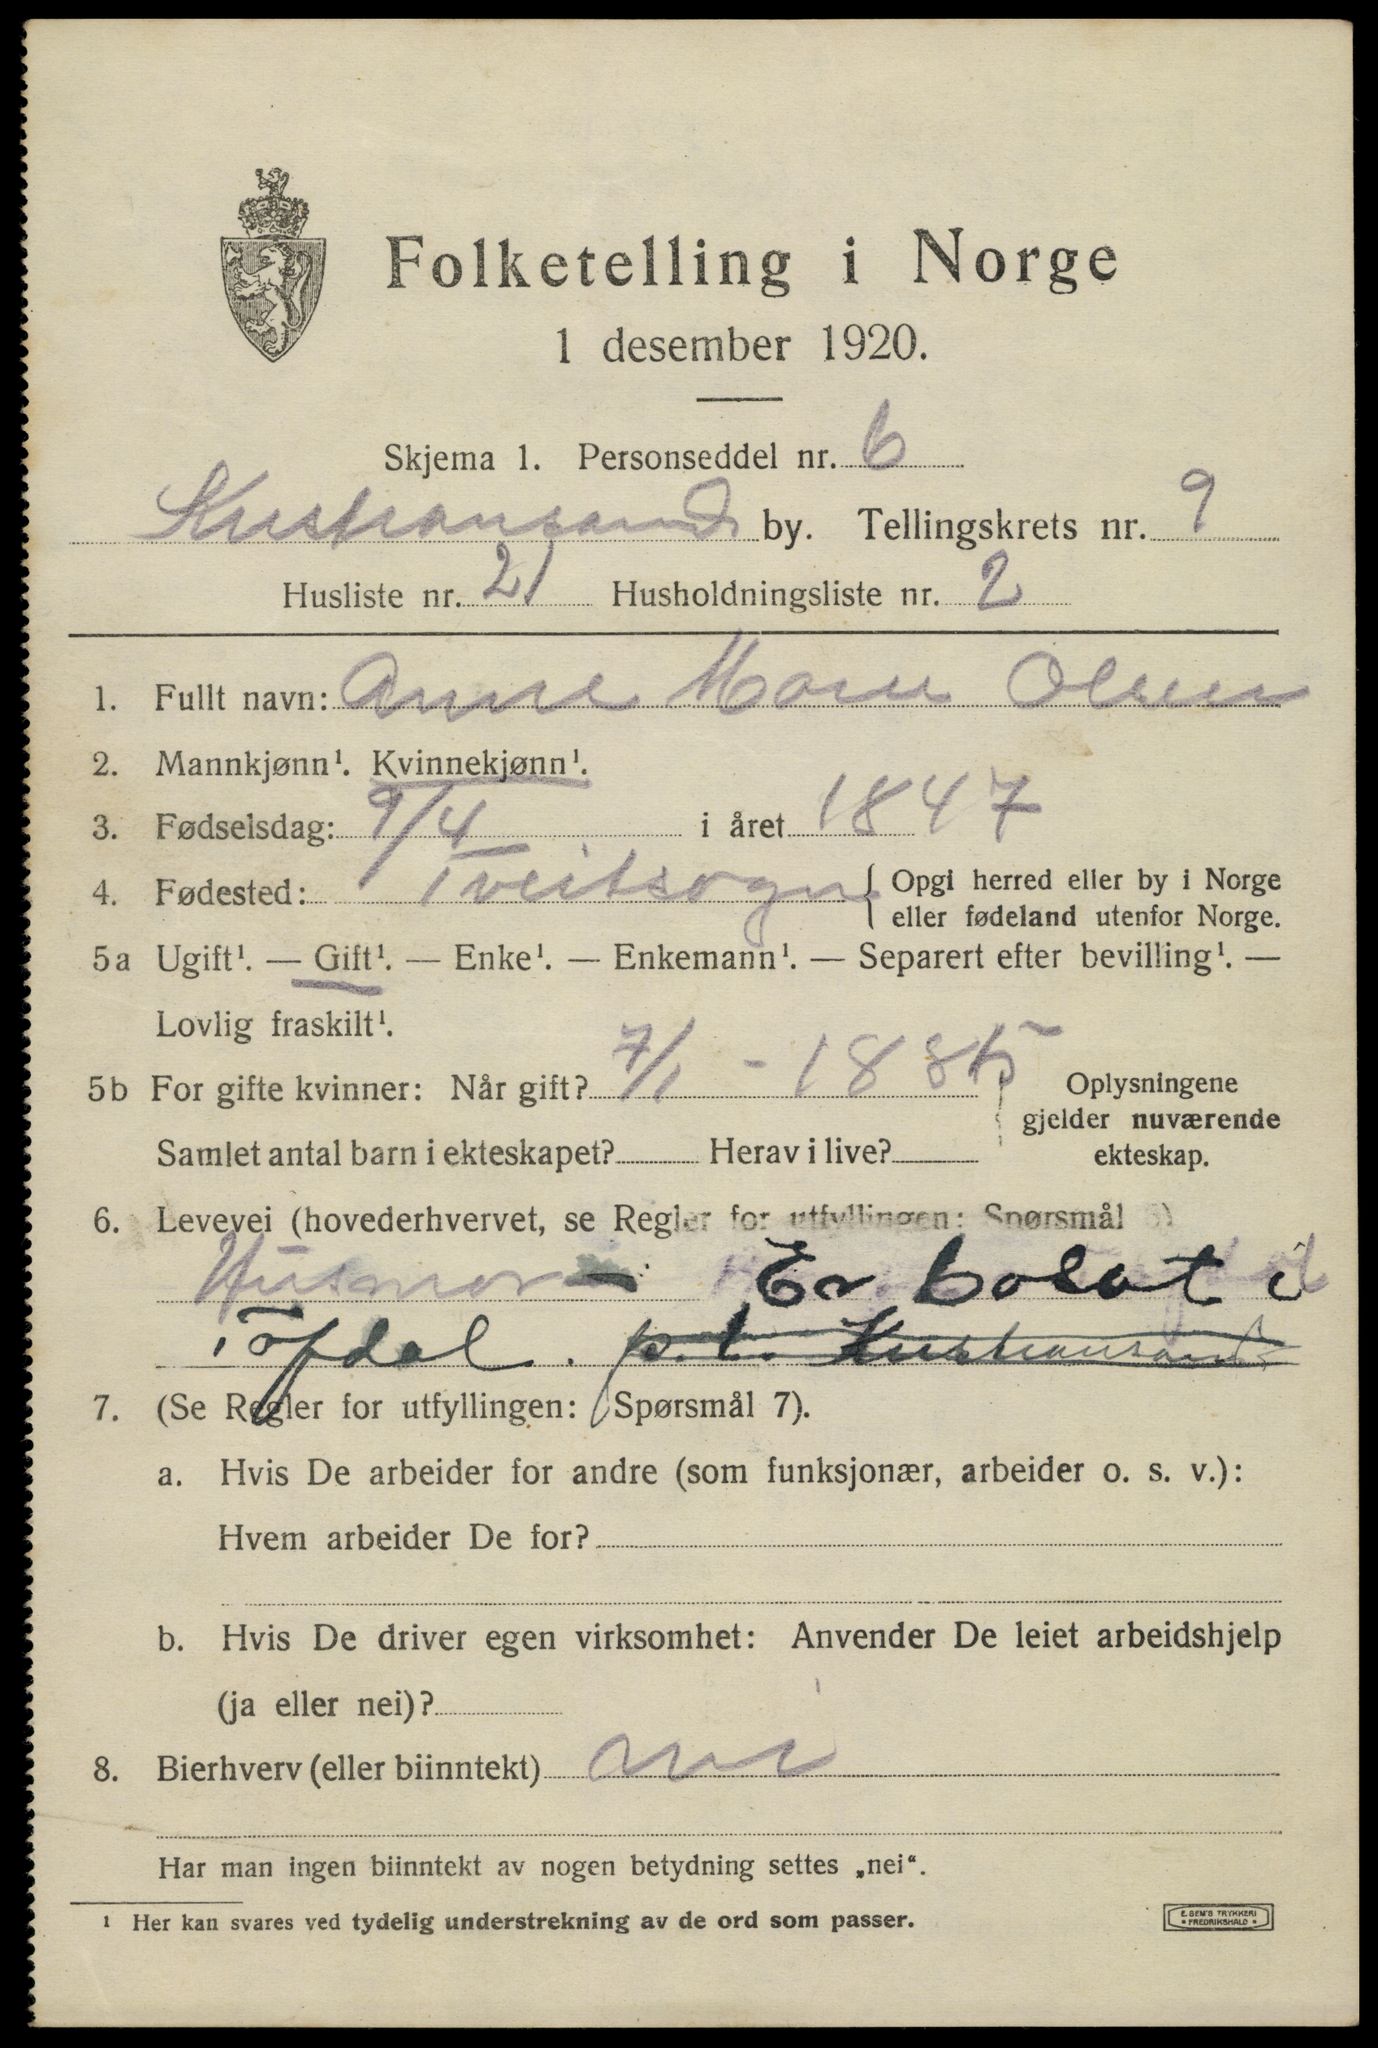 Folketelling i Norge
1 desember 1920.
Skjema 1. Personseddel nr. 6
Kristiansand by. Tellingskrets nr. 9
Husliste nr. 21 Husholdningsliste nr. 2
1. Fullt navn: Anne Marie Olsen
2. Mannkjønn¹. Kvinnekjønn¹.
3. Fødselsdag: 9/4 i året 1847
4. Fødested: Tveitsogn { Opgi herred eller by i Norge
eller fødeland utenfor Norge.
5a Ugift¹. — Gift¹. — Enke¹. — Enkemann¹. — Separert efter bevilling¹. —
Lovlig fraskilt¹.
5b For gifte kvinner: Når gift? 7/1 - 1885 Oplysningene
gjelder nuværende
Samlet antal barn i ekteskapet? Herav i live? ekteskap.
6. Levevei (hovederhvervet, se Regler for utfyllingen: Spørsmål 6)
Husmor - Er bosat i
Tofdal. p.t. Kristiansand
7. (Se Regler for utfyllingen: Spørsmål 7).
a. Hvis De arbeider for andre (som funksjonær, arbeider o. s. v.):
Hvem arbeider De for?
b. Hvis De driver egen virksomhet: Anvender De leiet arbeidshjelp
(ja eller nei)?
8. Bierhverv (eller biinntekt) nei
Har man ingen biinntekt av nogen betydning settes „nei“.
¹ Her kan svares ved tydelig understrekning av de ord som passer.
E. SEM'S TRYKKERI
• FREDRIKSHALD •